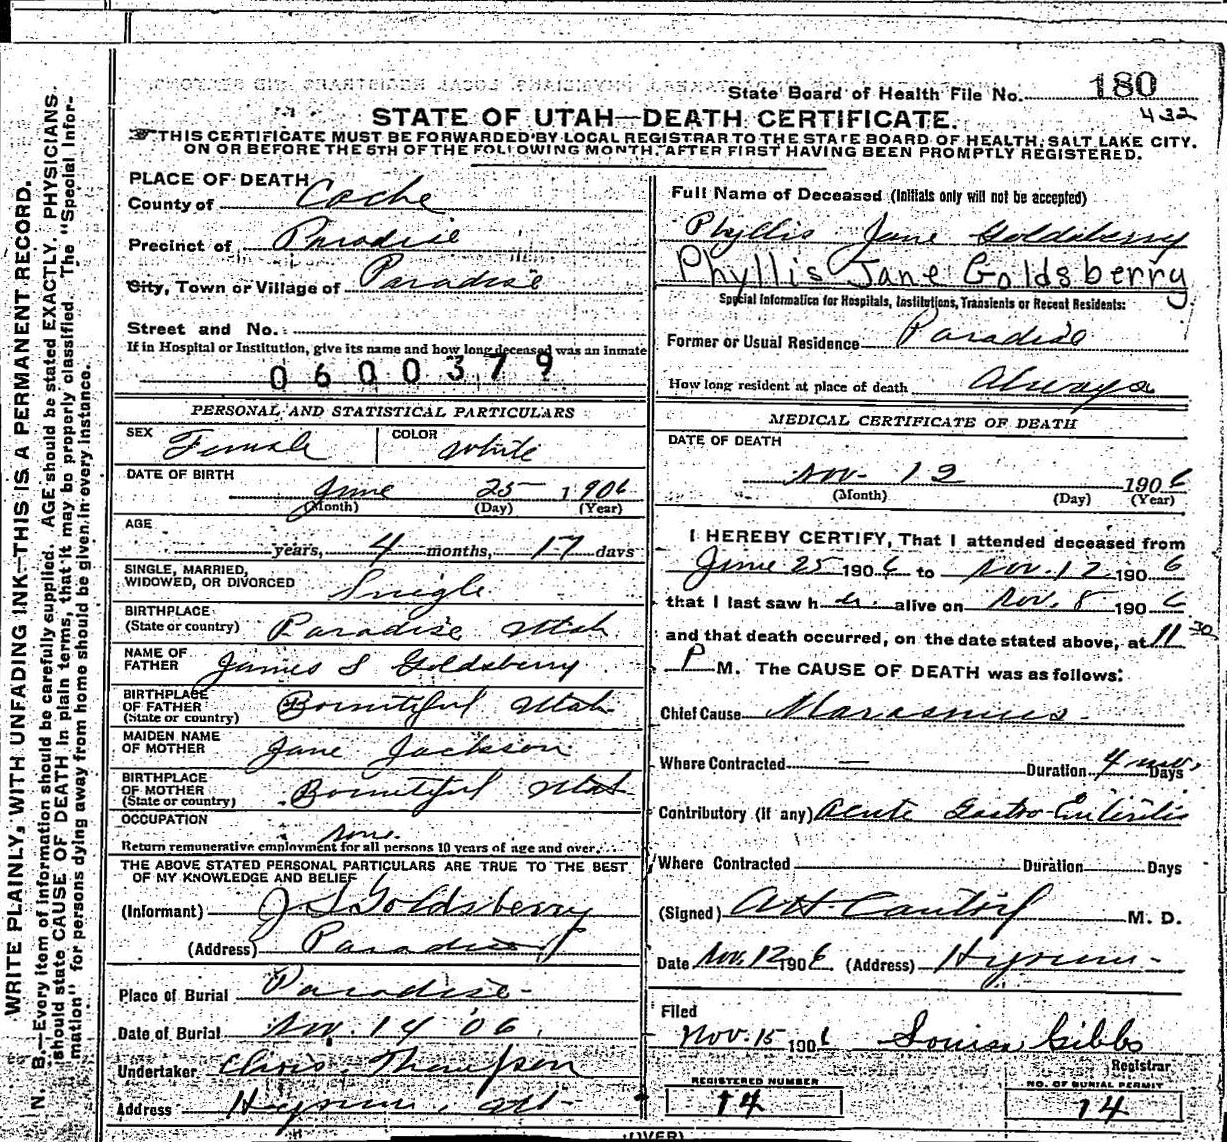 State Board of Health File No. 180
432
STATE OF UTAH—DEATH CERTIFICATE.
THIS CERTIFICATE MUST BE FORWARDED BY LOCAL REGISTRAR TO THE STATE BOARD OF HEALTH, SALT LAKE CITY.
ON OR BEFORE THE 5TH OF THE FOLLOWING MONTH, AFTER FIRST HAVING BEEN PROMPTLY REGISTERED.
WRITE PLAINLY, WITH UNFADING INK—THIS IS A PERMANENT RECORD.
N. B.—Every item of information should be carefully supplied. AGE should be stated EXACTLY. PHYSICIANS
should state CAUSE OF DEATH in plain terms, that it may be properly classified. The "Special Infor-
mation" for persons dying away from home should be given in every instance.
PLACE OF DEATH
County of Cache
Precinct of Paradise
City, Town or Village of Paradise
Street and No.
If in Hospital or Institution, give its name and how long deceased was an inmate
0600379
PERSONAL AND STATISTICAL PARTICULARS
SEX Female COLOR White
DATE OF BIRTH
June 25 1906
(Month) (Day) (Year)
AGE
years, 4 months, 17 days
SINGLE, MARRIED,
WIDOWED, OR DIVORCED Single
BIRTHPLACE
(State or country) Paradise Utah
NAME OF
FATHER James S Goldsberry
BIRTHPLACE
OF FATHER
(State or country) Bountiful Utah
MAIDEN NAME
OF MOTHER Jane Jackson
BIRTHPLACE
OF MOTHER
(State or country) Bountiful Utah
OCCUPATION
None.
Return remunerative employment for all persons 10 years of age and over.
THE ABOVE STATED PERSONAL PARTICULARS ARE TRUE TO THE BEST
OF MY KNOWLEDGE AND BELIEF
(Informant) J S Goldsberry
(Address) Paradise
Place of Burial Paradise
Date of Burial Nov. 14 '06.
Undertaker Thompson
Address Hyrum,
Full Name of Deceased (Initials only will not be accepted)
Phyllis Jane Goldsberry
Phyllis Jane Goldsberry
Special Information for Hospitals, Institutions, Transients or Recent Residents:
Former or Usual Residence Paradise
How long resident at place of death Always
MEDICAL CERTIFICATE OF DEATH
DATE OF DEATH
Nov. 12 1906
(Month) (Day) (Year)
I HEREBY CERTIFY, That I attended deceased from
June 25 1906 to Nov. 12 1906
that I last saw her alive on Nov. 8 1906
and that death occurred, on the date stated above, at 11 30
P M. The CAUSE OF DEATH was as follows:
Chief Cause Marasmus.
Where Contracted — Duration 4 mo. Days
Contributory (if any) Acute Gastro-Enteritis
Where Contracted Duration Days
(Signed) M. D.
Date Nov. 12 1906 (Address) Hyrum
Filed
Nov. 15 1906 Louisa Gibbs
Registrar
REGISTERED NUMBER
14
NO. OF BURIAL PERMIT
14
(OVER)